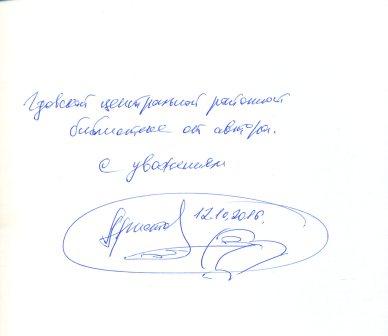 Гдовской центральной районной
библиотеке от автора.
с уважением
12.10.2016.